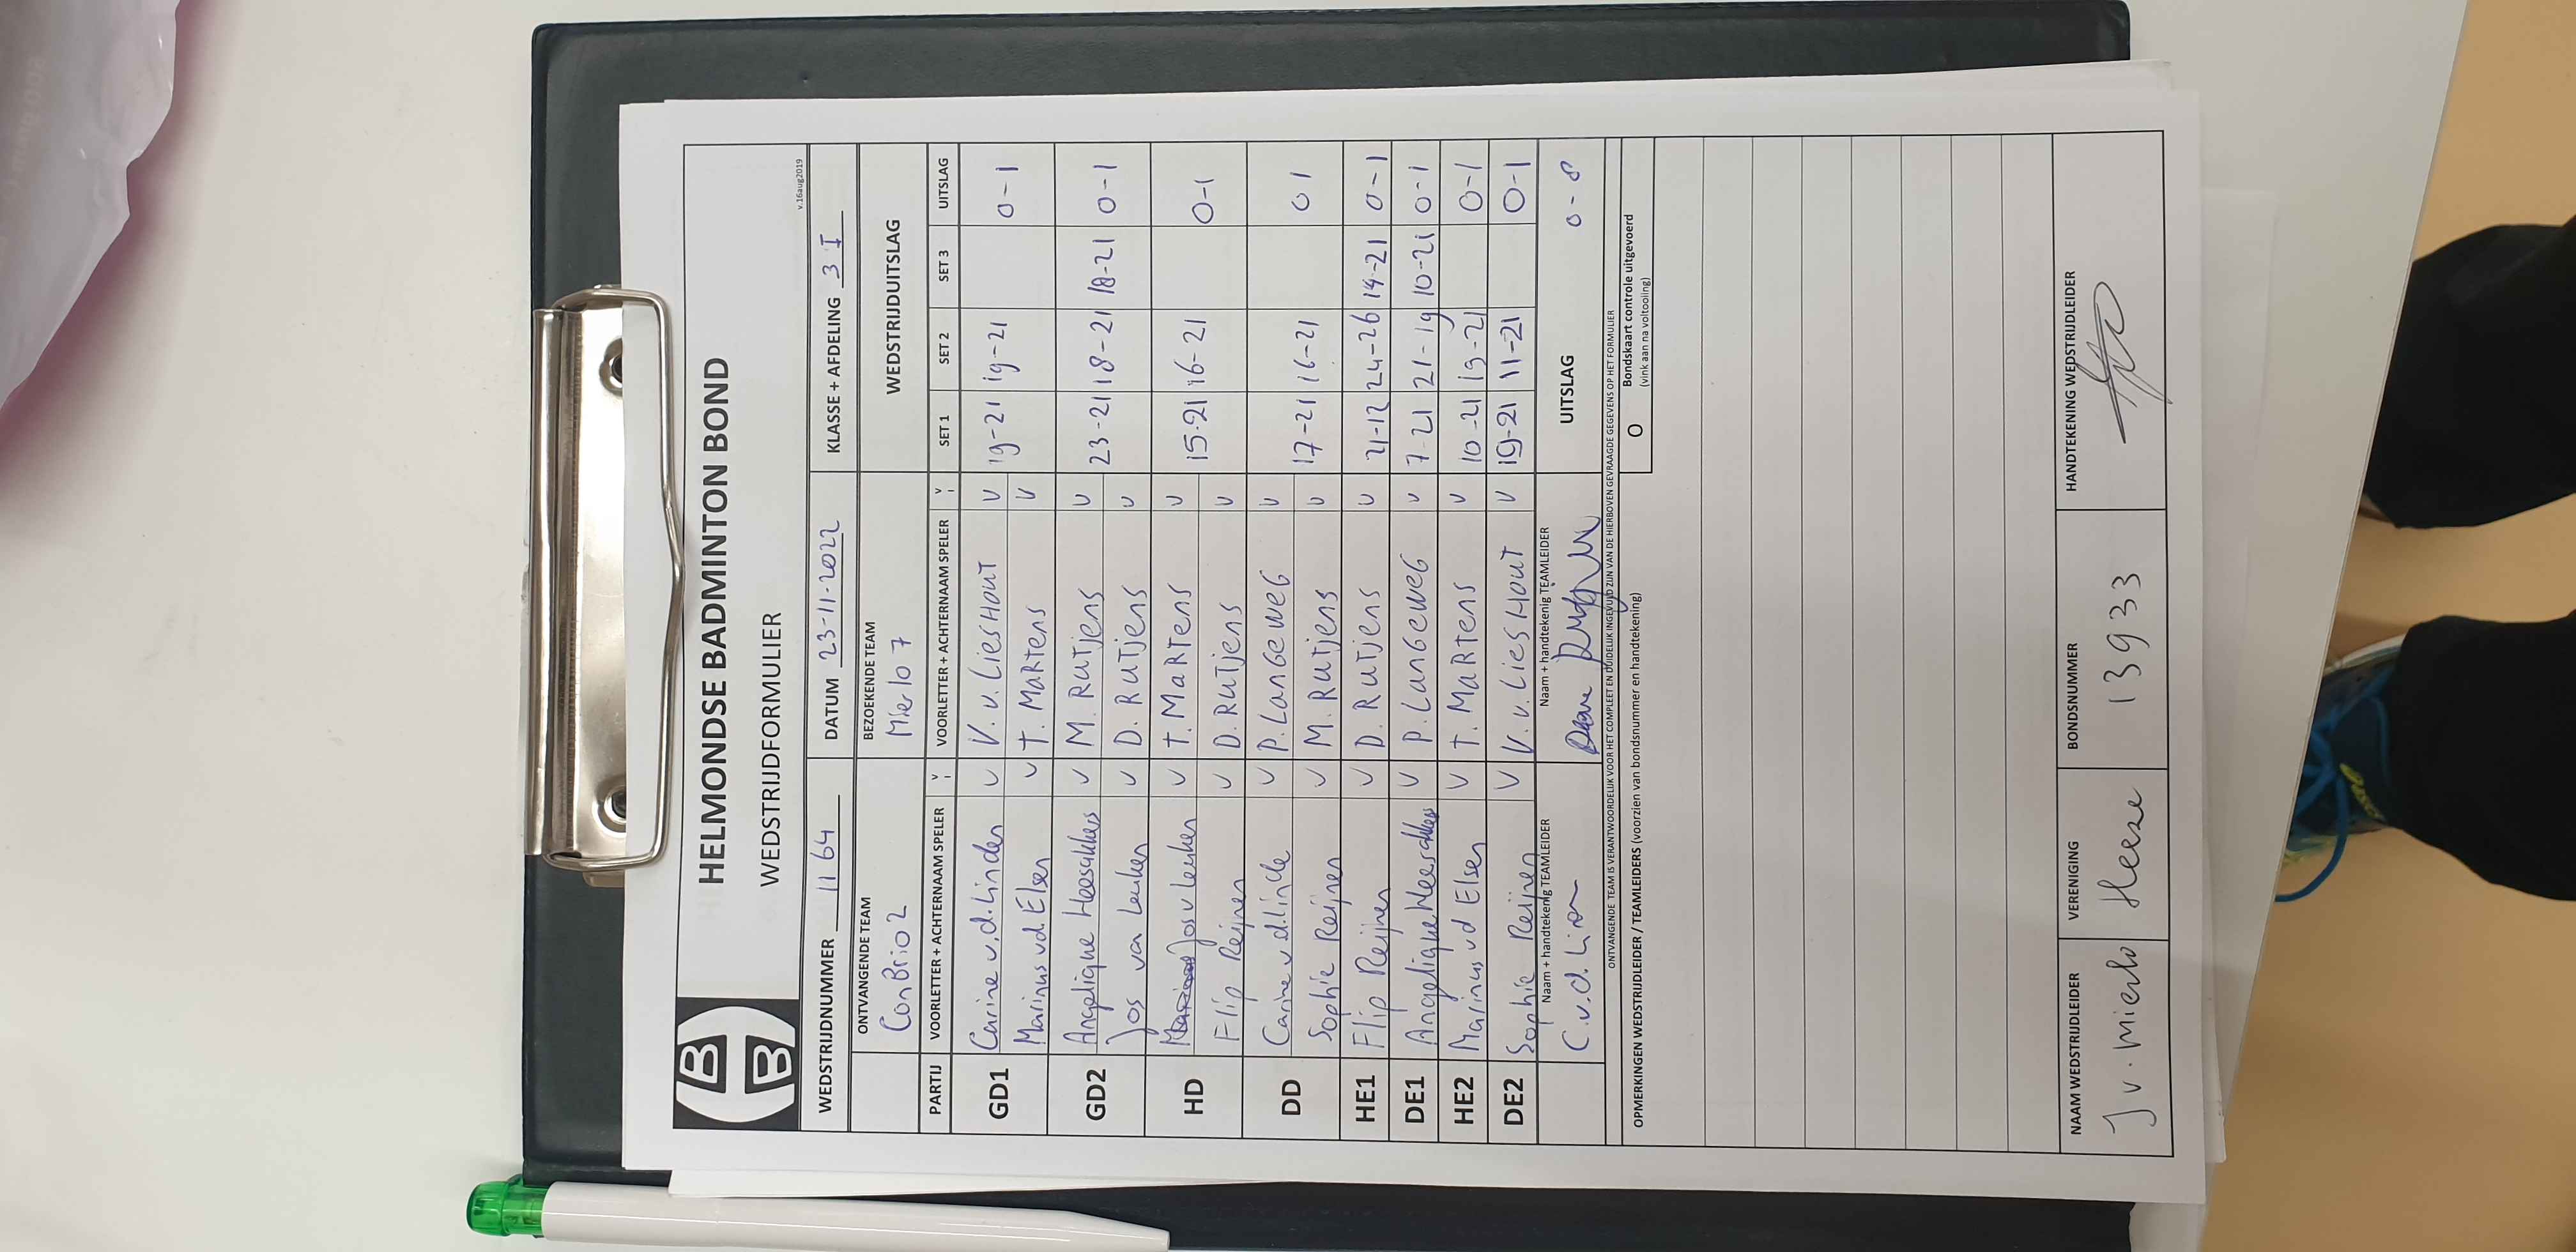 HELMONDSE BADMINTON BOND
WEDSTRIJDFORMULIER
v.16aug2019
WEDSTRIJDNUMMER 1164 DATUM 23-11-2022 KLASSE + AFDELING 3 I
ONTVANGENDE TEAM BEZOEKENDE TEAM WEDSTRIJDUITSLAG
ConBrio 2 Mierlo 7
PARTIJ VOORLETTER + ACHTERNAAM SPELER V VOORLETTER + ACHTERNAAM SPELER V SET 1 SET 2 SET 3 UITSLAG
GD1 Carine v.d. Linden V V. v. Lieshout V 19-21 19-21 0-1
Marinus vd Elsen V T. Martens V
GD2 Angelique Heesakkers V M. Rutjens V 23-21 18-21 18-21 0-1
Jos van Leuken V D. Rutjens V
HD Jos v Leuken V T. Martens V 15-21 16-21 0-1
Flip Reijnen V D. Rutjens V
DD Carine v d. Linde V P. Langeweg V 17-21 16-21 0 1
Sophie Reijnen V M. Rutjens V
HE1 Flip Reijnen V D. Rutjens V 21-12 24-26 14-21 0-1
DE1 Angelique Heesakkers V P. Langeweg V 7-21 21-19 10-21 0-1
HE2 Marinus vd Elsen V T. Martens V 10-21 13-21 0-1
DE2 Sophie Reijnen V V. v. Lieshout V 19-21 11-21 0-1
Naam + handtekenig TEAMLEIDER Naam + handtekenig TEAMLEIDER UITSLAG 0-8
C.v.d. Linden
ONTVANGENDE TEAM IS VERANTWOORDELIJK VOOR HET COMPLEET EN DUIDELIJK INGEVULD ZIJN VAN DE HIERBOVEN GEVRAAGDE GEGEVENS OP HET FORMULIER
OPMERKINGEN WEDSTRIJDLEIDER / TEAMLEIDERS (voorzien van bondsnummer en handtekening)
O Bondskaart controle uitgevoerd
(vink aan na voltooling)
NAAM WEDSTRIJDLEIDER VERENIGING BONDSNUMMER HANDTEKENING WEDSTRIJDLEIDER
J v. Mierlo Heeze 13933